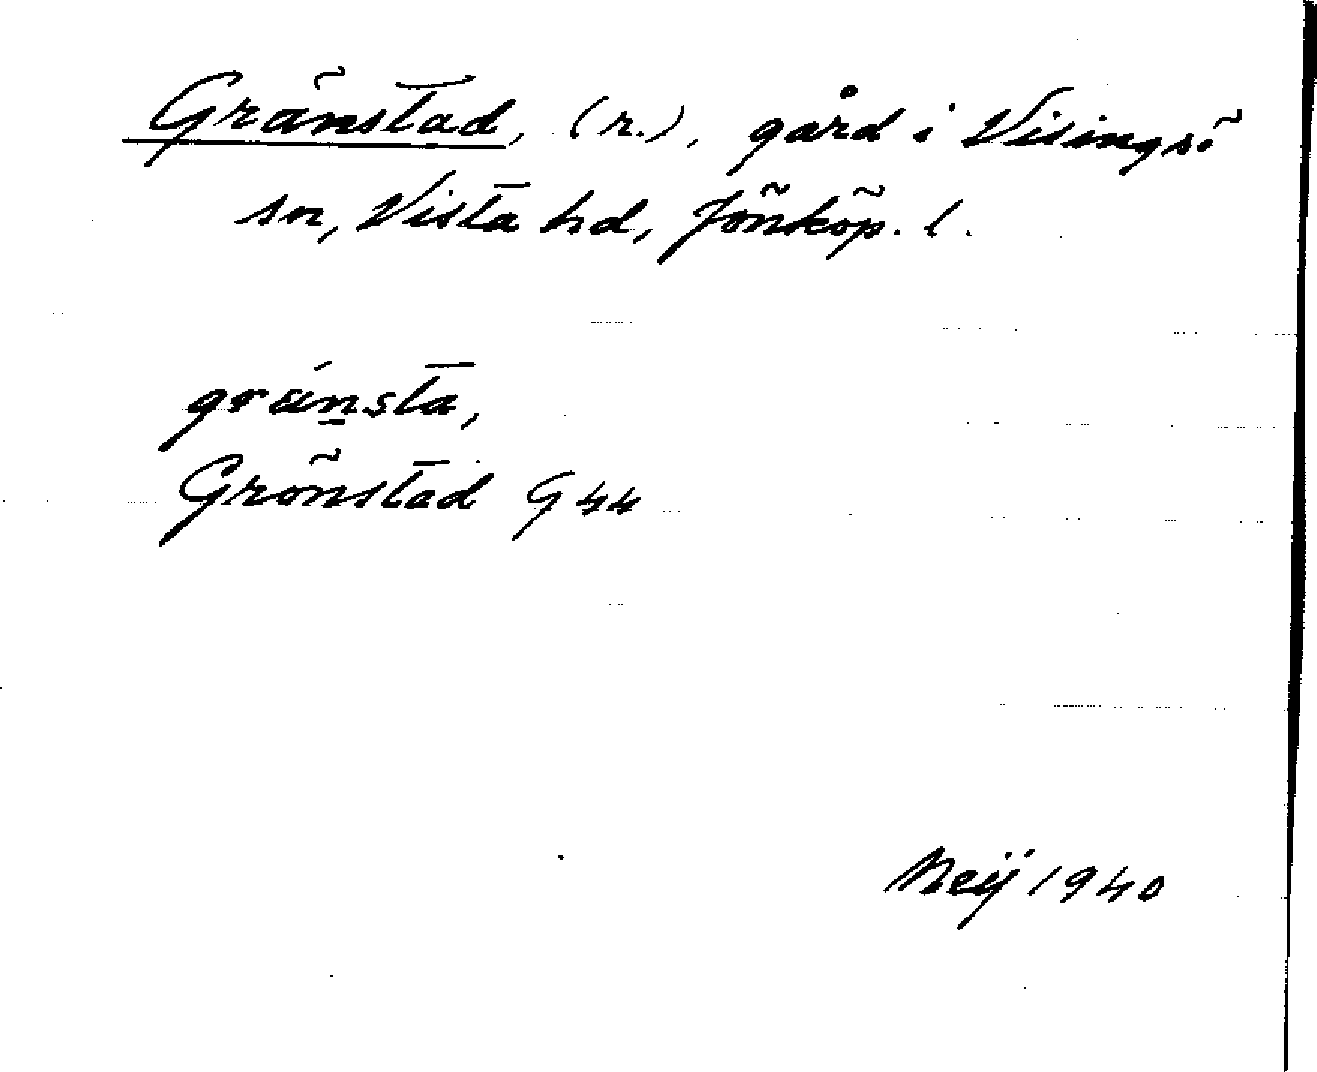 Gränstad, (r.), gård i Visingsö
sn, Vista hd, Jönköp. l.
gränsta,
Grönstad G 44
Neij 1940